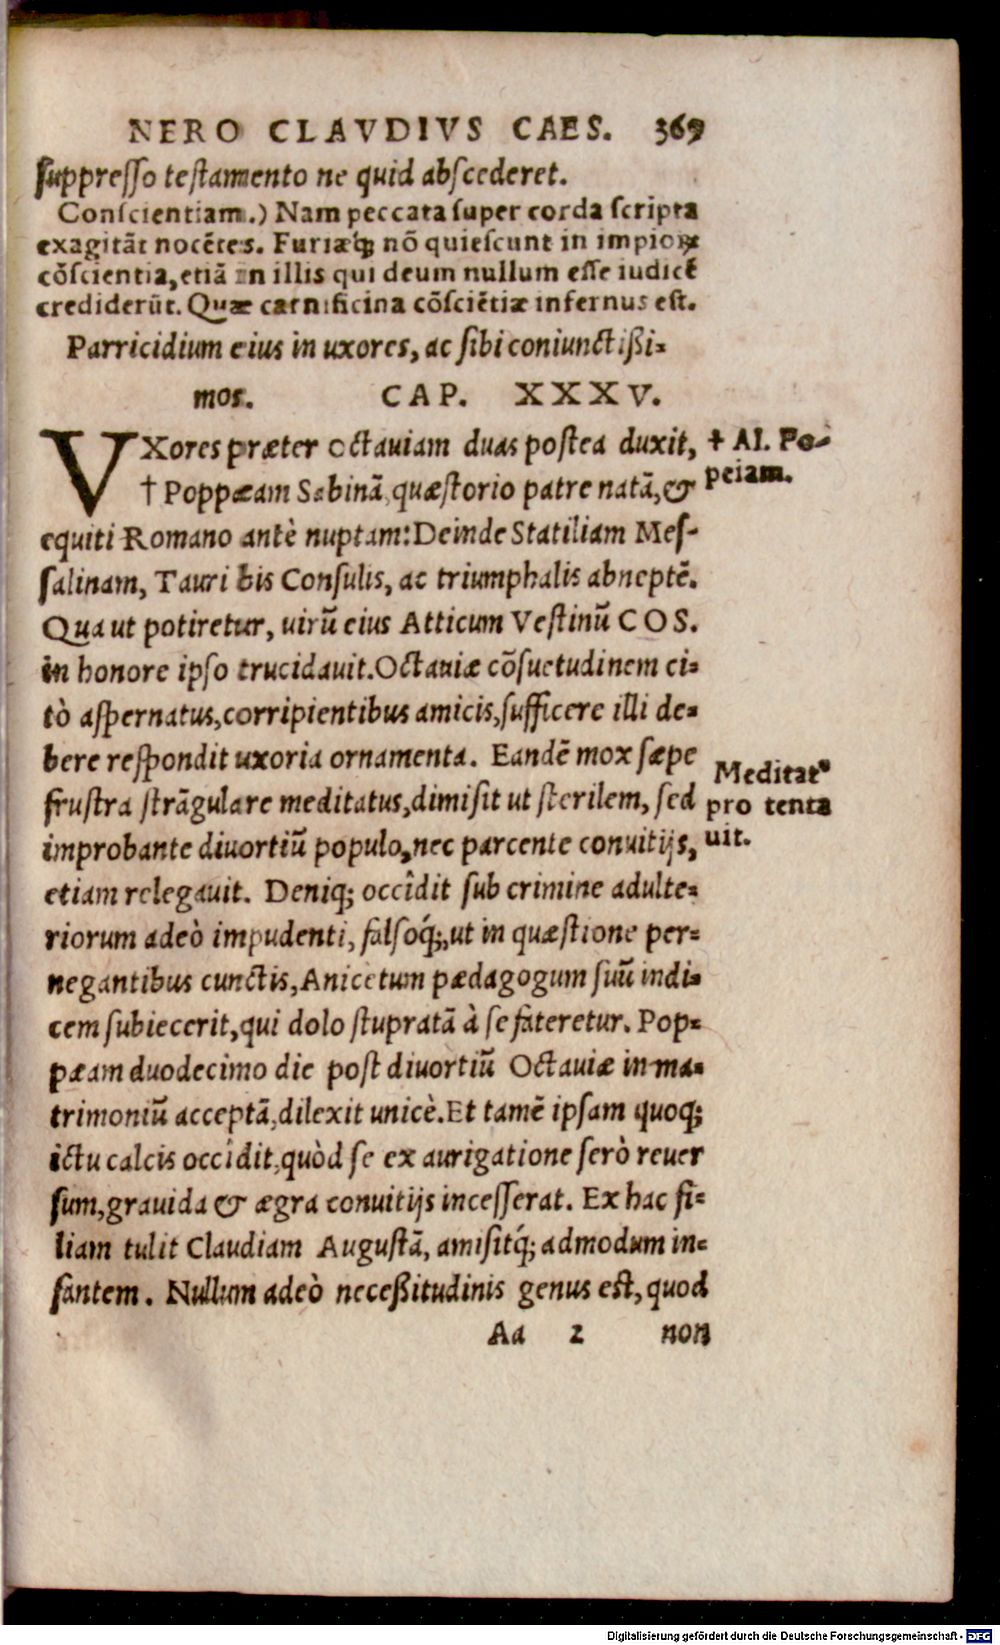 NERO CLAVDIVS CAES. 369
suppresso testamento ne quid abscederet.
Conscientiam.) Nam peccata super corda scripta
exagitãt nocẽtes. Furiæq́; nõ quiescunt in impioꝝ
cõscientia, etiã in illis qui deum nullum esse iudicẽ
crediderũt. Quæ carnificina cõsciẽtiæ infernus est.
Parricidium eius in uxores, ac sibi coniunctißi-
mos. CAP. XXXV.
VXores præter Octauiam duas postea duxit,
† Poppæam Sabinã, quæstorio patre natã, &
equiti Romano antè nuptam: Deinde Statiliam Mes-
salinam, Tauri bis Consulis, ac triumphalis abneptẽ.
Qua ut potiretur, uirũ eius Atticum Vestinũ COS.
in honore ipso trucidauit. Octauiæ cõsuetudinem ci-
tò aspernatus, corripientibus amicis, sufficere illi de-
bere respondit uxoria ornamenta. Eandẽ mox sæpe
frustra strãgulare meditatus, dimisit ut sterilem, sed
improbante diuortiũ populo, nec parcente conuitijs,
etiam relegauit. Deniq; occîdit sub crimine adulte-
riorum adeò impudenti, falsoq́;, ut in quæstione per-
negantibus cunctis, Anicetum pædagogum suũ indi-
cem subiecerit, qui dolo stupratã à se fateretur. Pop-
pæam duodecimo die post diuortiũ Octauiæ in ma-
trimoniũ acceptã, dilexit unicè. Et tamẽ ipsam quoq;
ictu calcis occîdit, quòd se ex aurigatione serò reuer
sum, grauida & ægra conuitijs incesserat. Ex hac fi-
liam tulit Claudiam Augustã, amisitq́; admodum in-
fantem. Nullum adeò neceßitudinis genus est, quod
Aa 2 non
† Al. Po-
peiam.
Meditatꝰ
pro tenta
uit.
Digitalisierung gefördert durch die Deutsche Forschungsgemeinschaft - DFG